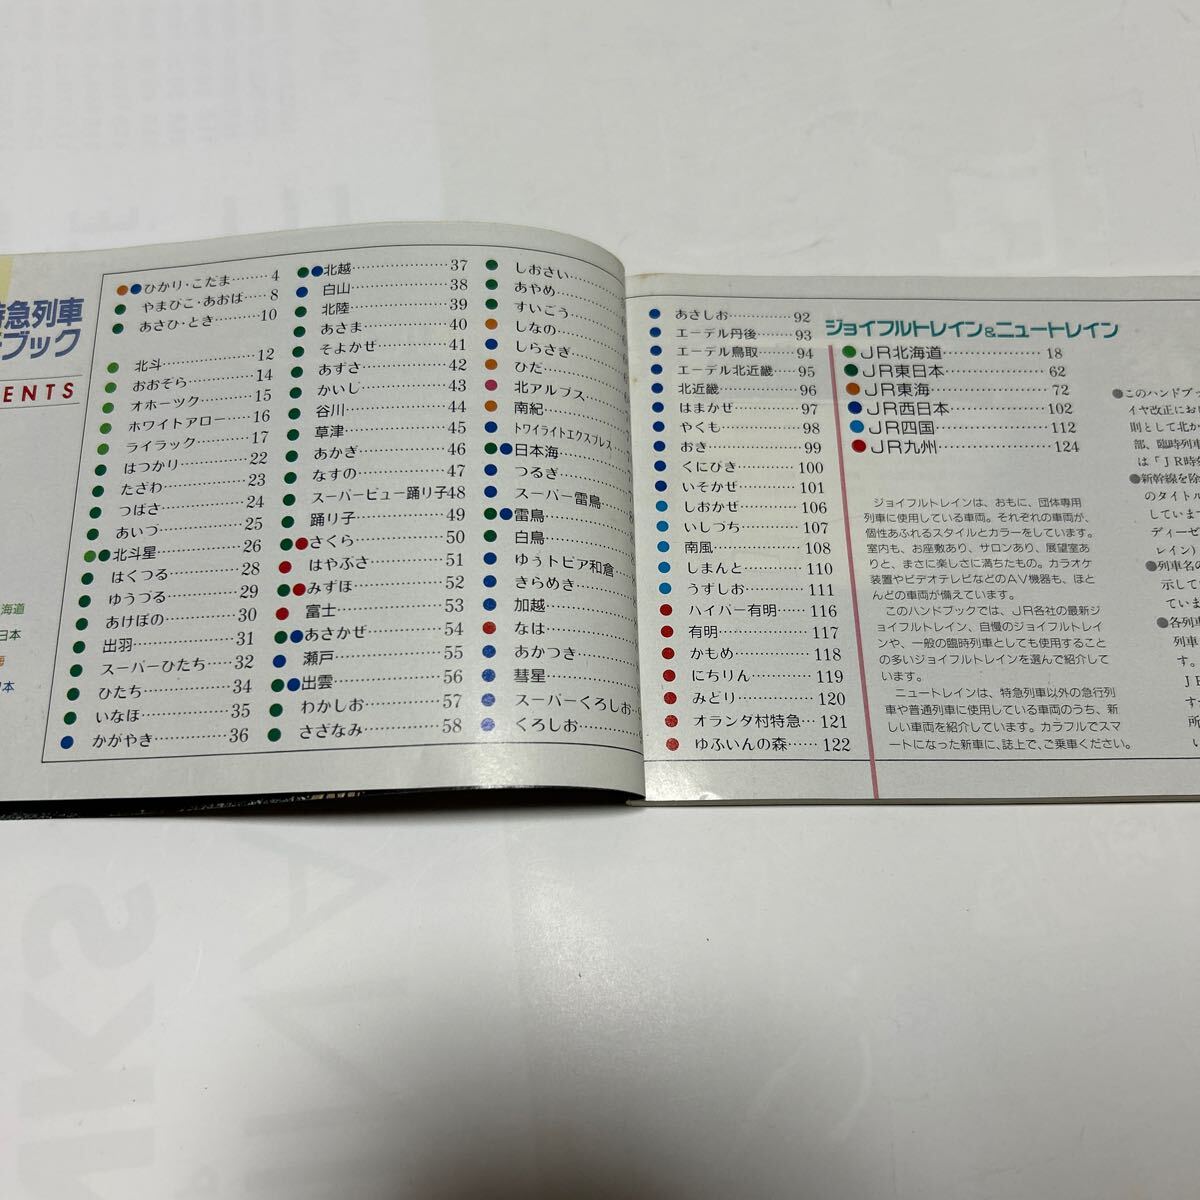 急列車
ブック
ENTS
海道
日本
本
ひかり・こだま……… 4
やまびこ・あおば… 8
あさひ・とき………10
北斗…………………12
おおぞら……………14
オホーツク…………15
ホワイトアロー……16
ライラック…………17
はつかり……………22
たざわ………………23
つばさ………………24
あいづ………………25
北斗星………………26
はくつる……………28
ゆうづる……………29
あけぼの……………30
出羽…………………31
スーパーひたち……32
ひたち………………34
いなほ………………35
かがやき……………36
北越…………………37
白山…………………38
北陸…………………39
あさま………………40
そよかぜ……………41
あずさ………………42
かいじ………………43
谷川…………………44
草津…………………45
あかぎ………………46
なすの………………47
スーパービュー踊り子48
踊り子………………49
さくら………………50
はやぶさ……………51
みずほ………………52
富士…………………53
あさかぜ……………54
瀬戸…………………55
出雲…………………56
わかしお……………57
さざなみ……………58
しおさい
あやめ
すいごう
しなの
しらさぎ
ひだ
北アルプス
南紀
トワイライトエクスプレス
日本海
つるぎ
スーパー雷鳥
雷鳥
白鳥
ゆぅトピア和倉
きらめき
加越
なは
あかつき
彗星
スーパーくろしお
くろしお
あさしお……………92
エーデル丹後………93
エーデル鳥取………94
エーデル北近畿……95
北近畿………………96
はまかぜ……………97
やくも………………98
おき…………………99
くにびき……………100
いそかぜ……………101
しおかぜ……………106
いしづち……………107
南風…………………108
しまんと……………110
うずしお……………111
ハイパー有明………116
有明…………………117
かもめ………………118
にちりん……………119
みどり………………120
オランダ村特急……121
ゆふいんの森………122
ジョイフルトレイン&ニュートレイン
JR北海道……………18
JR東日本……………62
JR東海………………72
JR西日本……………102
JR四国………………112
JR九州………………124
ジョイフルトレインは、おもに、団体専用
列車に使用している車両。それぞれの車両が、
個性あふれるスタイルとカラーをしています。
室内も、お座敷あり、サロンあり、展望室あ
りと、まさに楽しさに満ちたもの。カラオケ
装置やビデオテレビなどのAV機器も、ほと
んどの車両が備えています。
このハンドブックでは、JR各社の最新ジ
ョイフルトレイン、自慢のジョイフルトレイ
ンや、一般の臨時列車としても使用すること
の多いジョイフルトレインを選んで紹介して
います。
ニュートレインは、特急列車以外の急行列
車や普通列車に使用している車両のうち、新
しい車両を紹介しています。カラフルでスマ
ートになった新車に、誌上で、ご乗車ください。
●このハンドブック
イヤ改正にお
則として北か
部、臨時列車
は「JR時
●新幹線を除
のタイトル
しています
ディーゼ
レイン)
●列車名の
示して
ていま
●各列車
列車
す。
JR
す
所
い